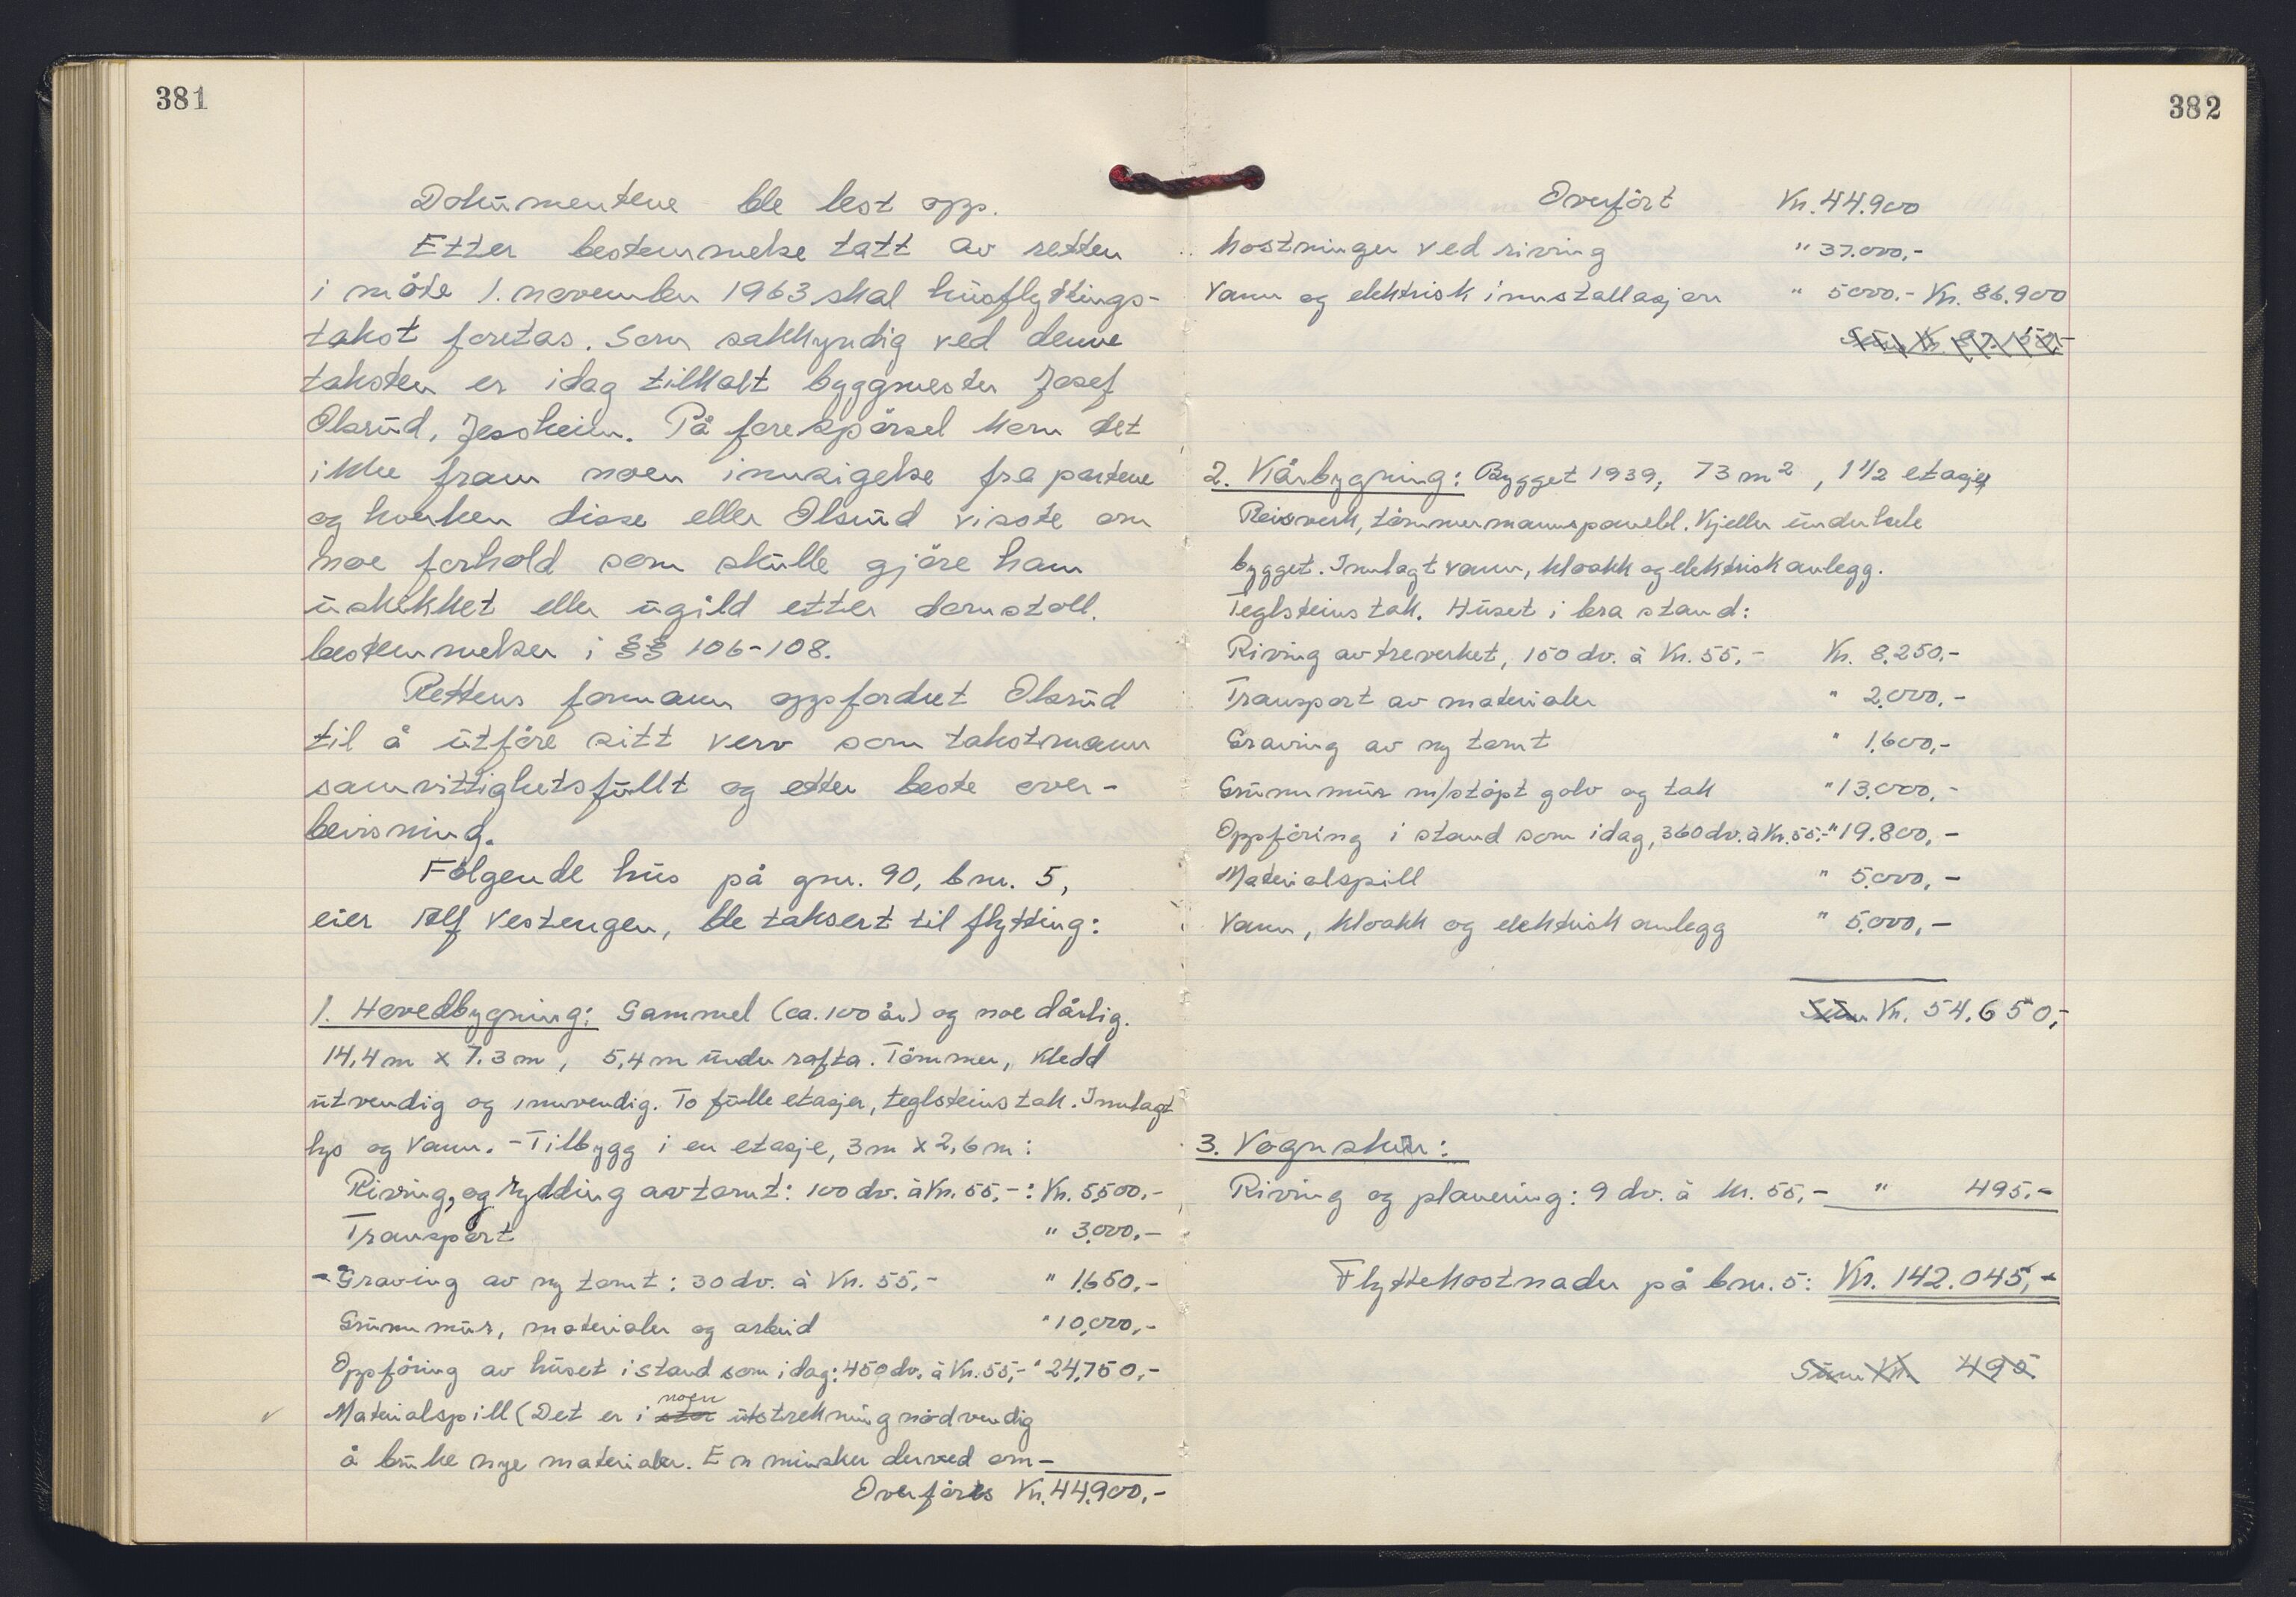 381
Dokumentene ble lest opp.
Etter bestemmelse tatt av retten
i möte 1. november 1963 skal husflyttings-
takst foretas. Som sakkyndig ved denne
taksten er idag tilkalt byggmester Josef
Olsrud, Jessheim. På forespörsel kom det
ikke fram noen innsigelse fra partene
og hverken disse eller Olsrud visste om
noe forhold som skulle gjöre ham
uskikket eller ugild etter domstoll.
bestemmelser i §§ 106-108.
Rettens formann oppfordret Olsrud
til å utföre sitt verv som takstmann
samvittighetsfullt og etter beste over-
bevisning.
Fölgende hus på gnr. 90, bnr. 5,
eier Alf Vestengen, ble taksert til flytting:
1. Hovedbygning: Gammel (ca. 100 år) og noe dårlig.
14,4 m x 7.3 m, 5,4 m under rafta. Tömmer, kledd
utvendig og innvendig. To fulle etasjer, teglsteinstak. Innlagt
lys og vann. - Tilbygg i en etasje, 3 m x 2,6 m:
Riving, og rydding av tomt: 100 dv. à Kr. 55,-: Kr. 5,500,-
Transport " 3,000,-
- Graving av ny tomt: 30 dv. à Kr. 55,- " 1,650,-
Grunnmur, materialer og arbeid " 10,000,-
Oppföring av huset i stand som idag: 450 dv. à Kr. 55,- " 24,750,-
noen
Materialspill (Det er i stor utstrekning nödvendig
å bruke nye materialer. En minsker derved om-
Overföres Kr. 44,900,-
382
Overfört Kr. 44.900
kostninger ved riving " 37.000,-
Vann og elektrisk innstallasjon " 5000.- Kr. 86.900
2. Kårbygning: Bygget 1939, 73 m2, 1 1/2 etasje
Reisverk, tömmermannspaneld. Kjeller under hele
bygget. Innlagt vann, kloakk og elektrisk anlegg.
Teglsteinstak. Huset i bra stand:
Riving av treverket, 150 dv. à Kr. 55,- Kr. 8.250,-
Transport av materialer " 2.000,-
Graving av ny tomt " 1.600,-
Grunnmur m/stöpt golv og tak " 13.000,-
Oppföring i stand som idag, 360 dv. à Kr. 55,- " 19.800,-
Materialspill " 5.000,-
Vann, kloakk og elektrisk anlegg " 5.000,-
Sum Kr. 54.650,-
3. Vognskur:
Riving og planering: 9 dv. à kr. 55,- " 495,-
Flyttekostnader på bnr. 5: Kr. 142.045,-
Sum Kr. 495